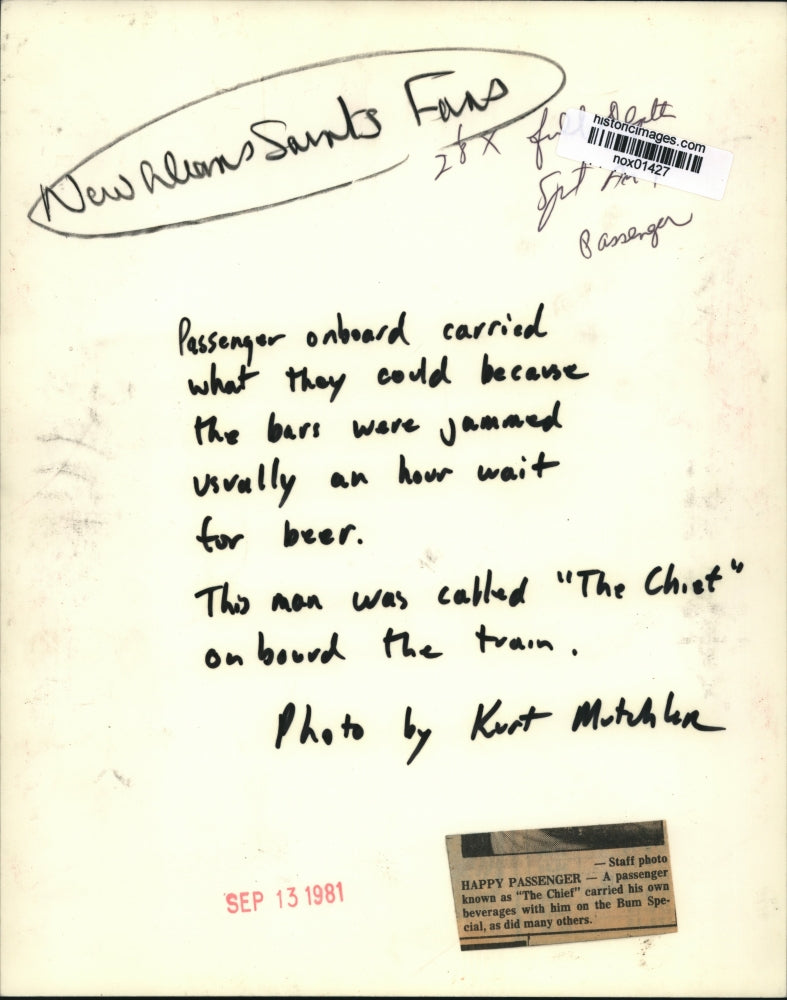 New Orleans Saints Fans
28 X
historicimages.com
nox01427
Passenger
Passenger onboard carried
what they could because
the bars were jammed
usually an hour wait
for beer.
This man was called "The Chief"
onboard the train.
Photo by Kurt Mutchler
SEP 13 1981
— Staff photo
HAPPY PASSENGER — A passenger
known as "The Chief" carried his own
beverages with him on the Bum Spe-
cial, as did many others.